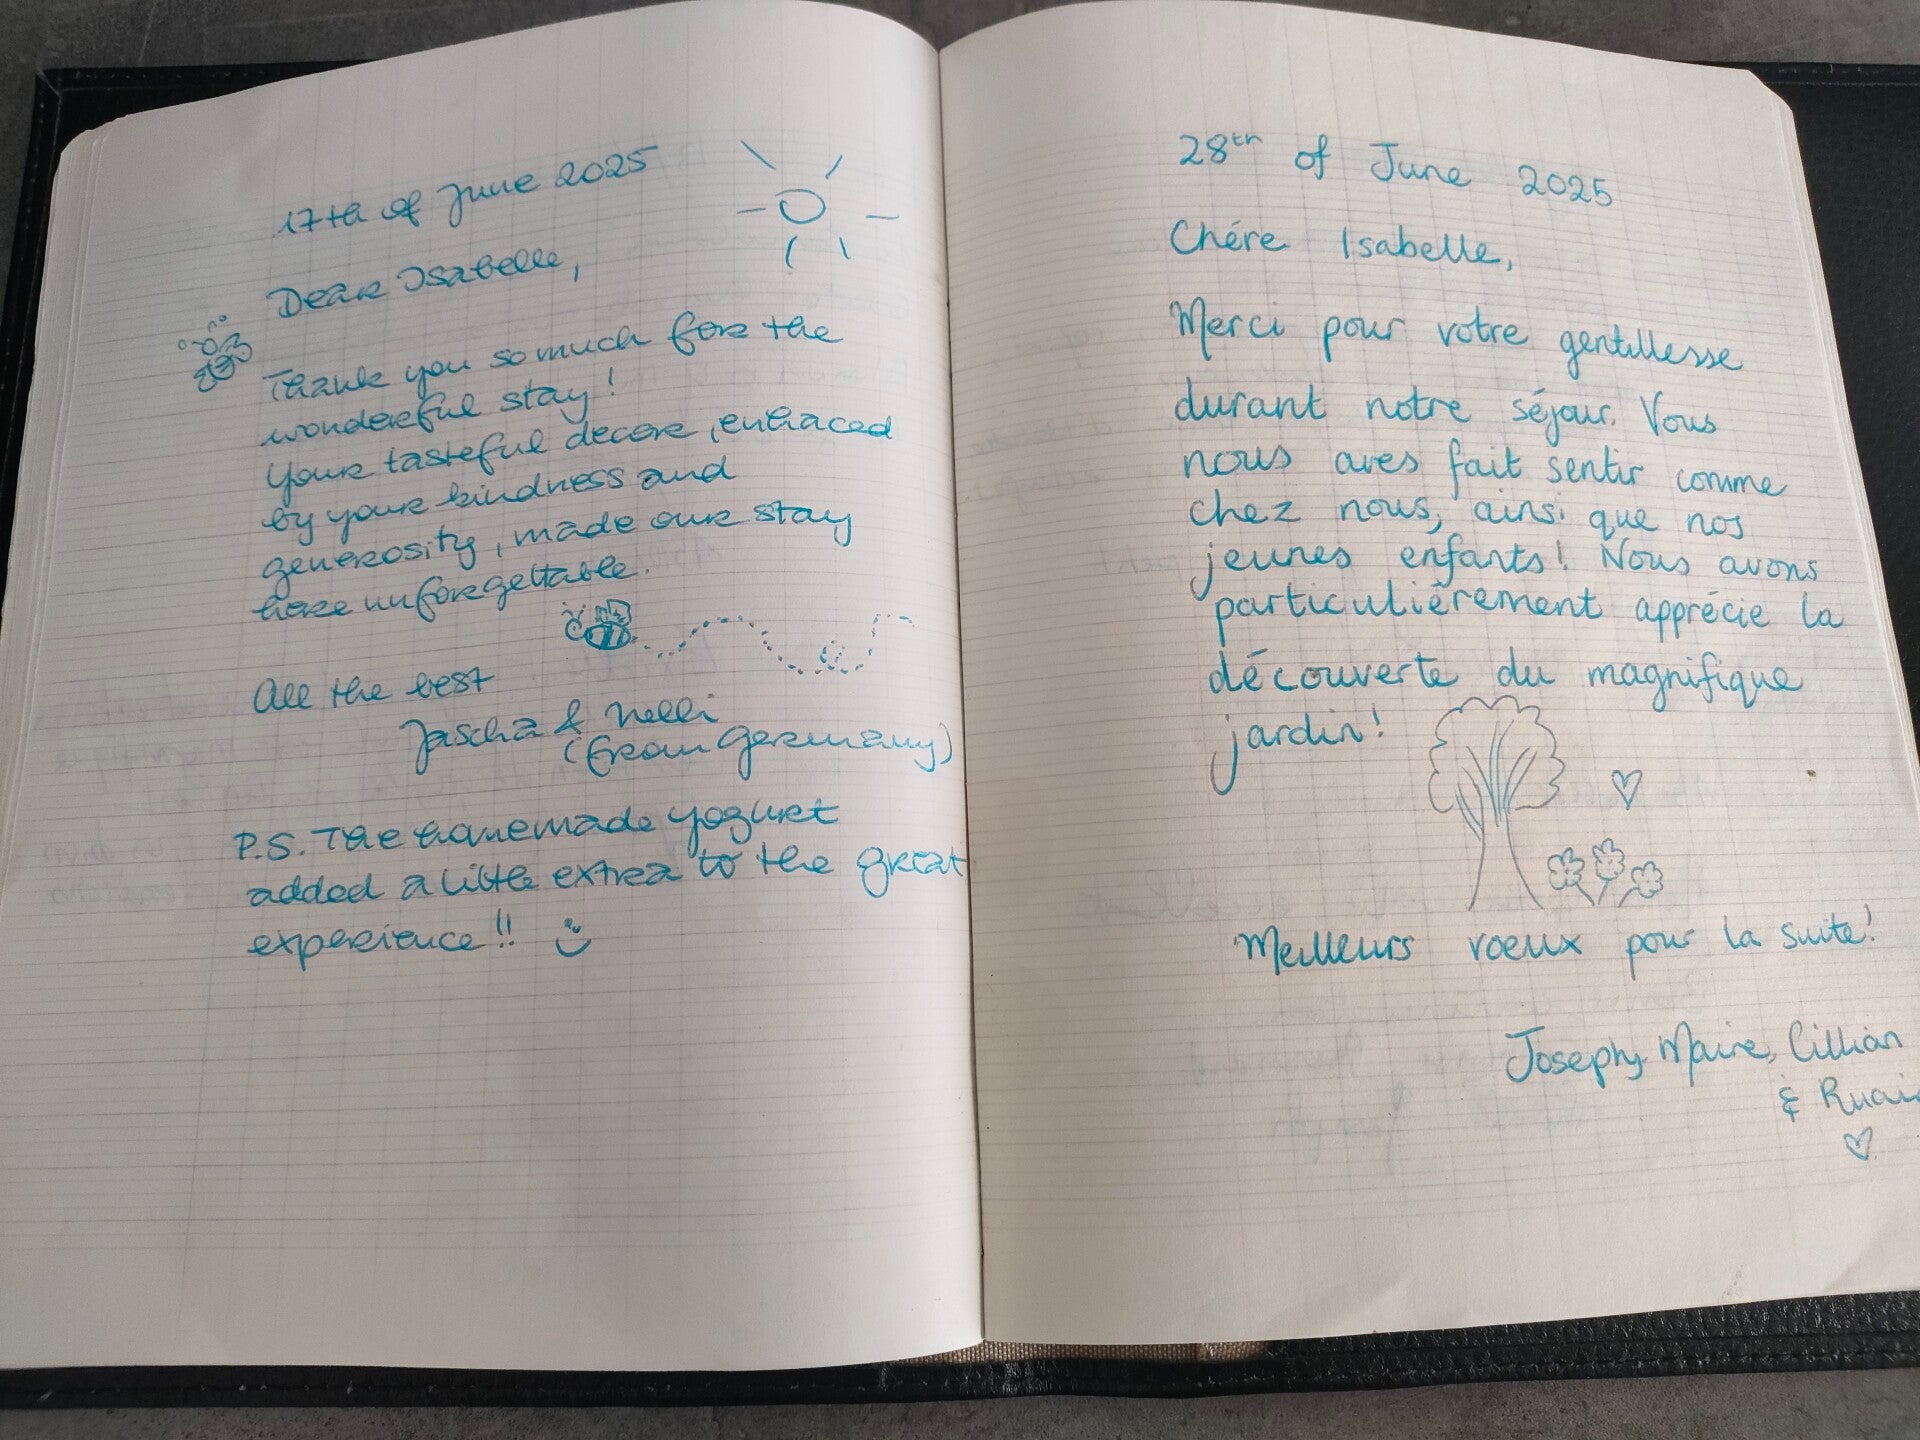 17th of June 2025
Dear Isabelle,
Thank you so much for the
wonderful stay!
Your tasteful decore, enhaced
by your kindness and
generosity, made our stay
here unforgettable.
All the best
Jascha & Nelli
(from Germany)
P.S. The homemade yogurt
added a little extra to the great
experience!!
28th of June 2025
Chére Isabelle,
Merci pour votre gentillesse
durant notre séjour. Vous
nous aves fait sentir comme
chez nous, ainsi que nos
jeunes enfants! Nous avons
particulièrement apprécie la
découverte du magnifique
jardin!
Meilleurs voeux pour la suite!
Joseph, Maire, Cillian
&